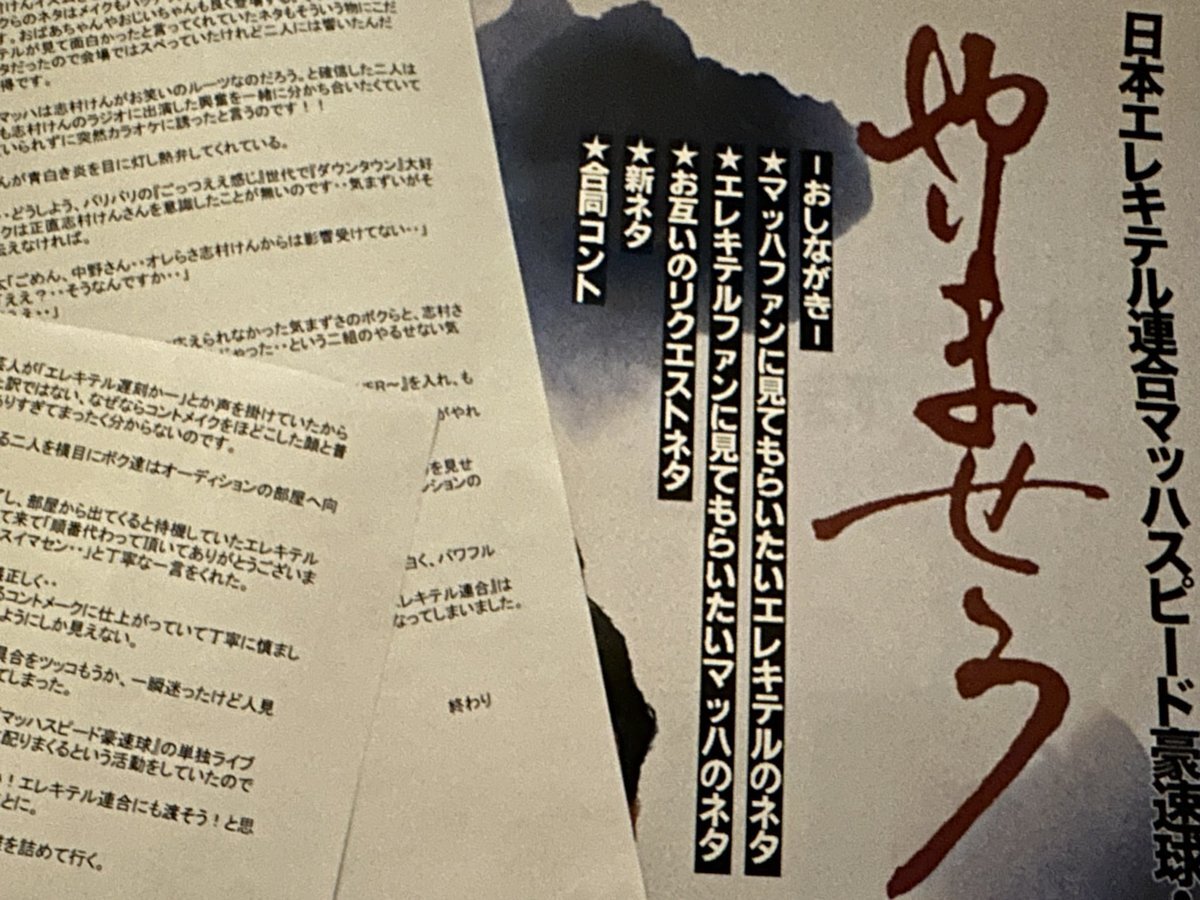 日本エレキテル連合マッハスピード豪速球
やりませう
ーおしながきー
★マッハファンに見てもらいたいエレキテルのネタ
★エレキテルファンに見てもらいたいマッハのネタ
★お互いのリクエストネタ
★新ネタ
★合同コント
す。おばあちゃんやおじいちゃんも良く登場する
テルが見て面白かったと言ってくれていたネタもそういう物にこだ
タだったので会場ではスベっていたけれど二人には響いたんだ
得です。
マッハは志村けんがお笑いのルーツなのだろう。と確信した二人は
も志村けんのラジオに出演した興奮を一緒に分かち合いたくていて
いられずに突然カラオケに誘ったと言うのです！！
んが青白き炎を目に灯し熱弁してくれている。
・・どうしよう、バリバリの『ごっつええ感じ』世代で『ダウンタウン』大好
クは正直志村けんさんを意識したことが無いのです・・気まずいがそ
伝えなければ。
太「ごめん、中野さん・・オレらさ志村けんからは影響受けてない・・」
「ええ？・・そうなんですか・・」
応えられなかった気まずさのボクらと、志村さ
じゃった・・という二組のやるせない気
ER～』を入れ、も
がやれ
を見せ
ションの
白く、パワフル
レキテル連合』は
なってしまいました。
終わり
芸人が「エレキテル遅刻かー」とか声を掛けていたから
た訳ではない、なぜならコントメイクをほどこした顔と普
ありすぎてまったく分からないのです。
る二人を横目にボク達はオーディションの部屋へ向
了し、部屋から出てくると待機していたエレキテル
て来て「順番代わって頂いてありがとうございま
スイマセン・・」と丁寧な一言をくれた。
儀正しく・・
るコントメークに仕上がっていて丁寧に慎まし
ようにしか見えない。
具合をツッコもうか、一瞬迷ったけど人見
てしまった。
『マッハスピード豪速球』の単独ライブ
に配りまくるという活動をしていたので
い！エレキテル連合にも渡そう！と思
とに。
離を詰めて行く。